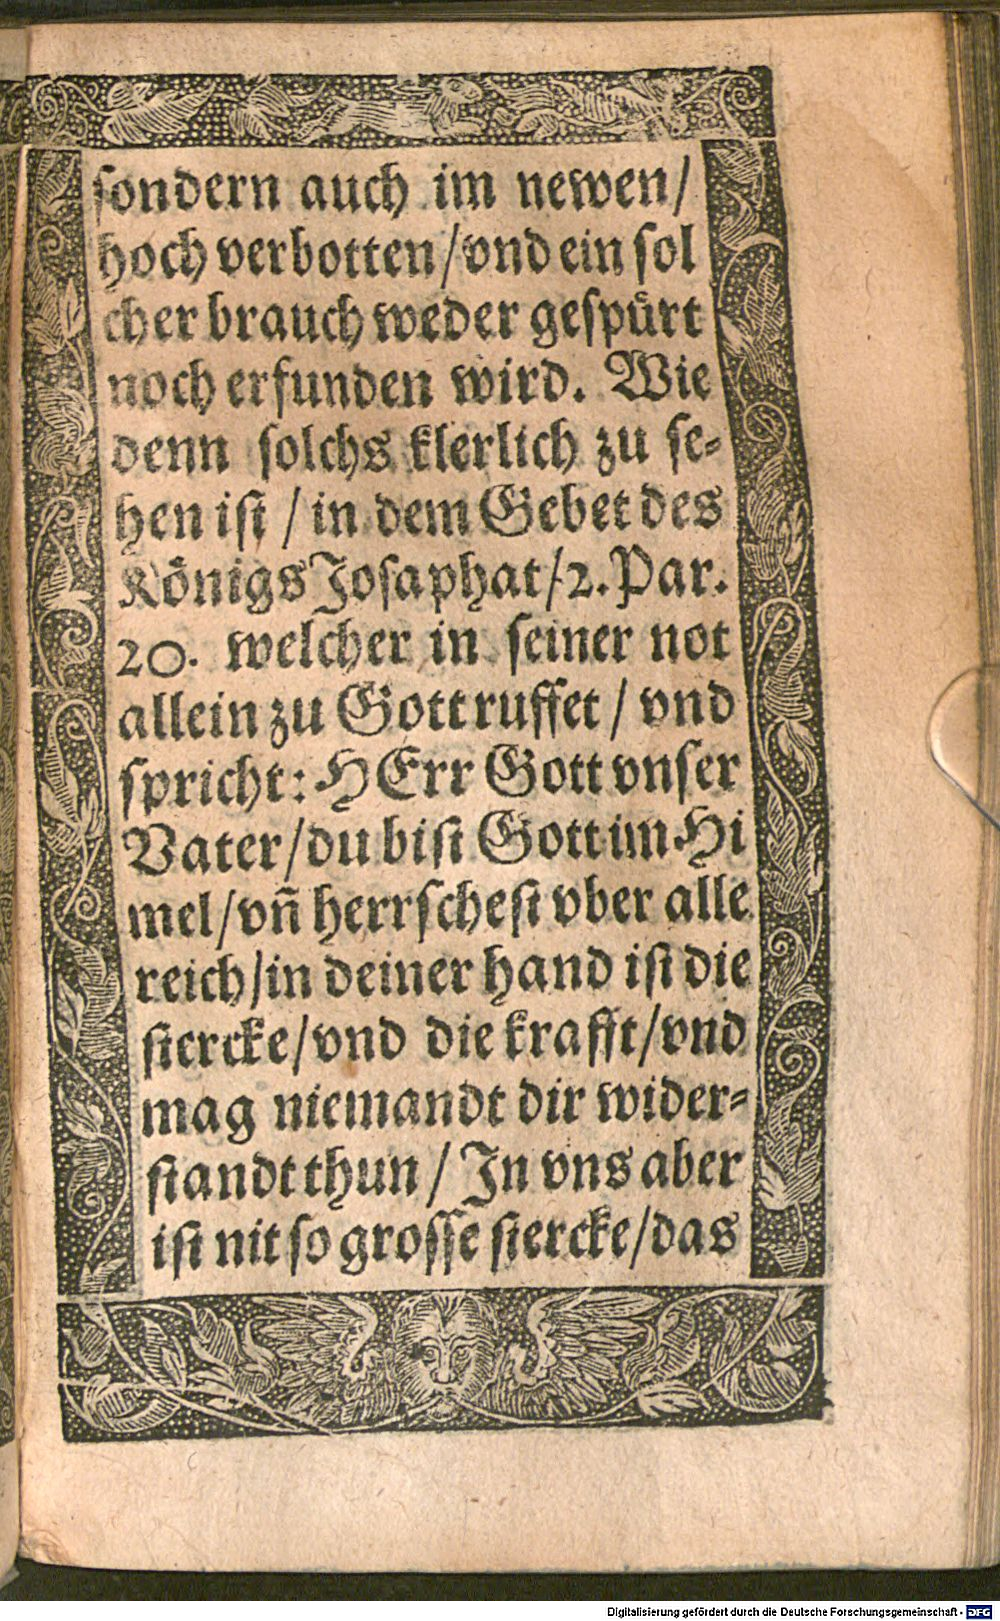 sondern auch im newen/
hoch verbotten/vnd ein sol
cher brauch weder gespuͤrt
noch erfunden wird. Wie
denn solchs klerlich zu se-
hen ist / in dem Gebet des
Koͤnigs Josaphat/2. Par.
20. welcher in seiner not
allein zu Gott ruffet / vnd
spricht: HErr Gott vnser
Vater/du bist Gott im Hi
mel/vñ herrschest vber alle
reich/in deiner hand ist die
stercke/vnd die krafft/vnd
mag niemandt dir wider-
standt thun / In vns aber
ist nit so grosse stercke/das
Digitalisierung gefördert durch die Deutsche Forschungsgemeinschaft - DFG